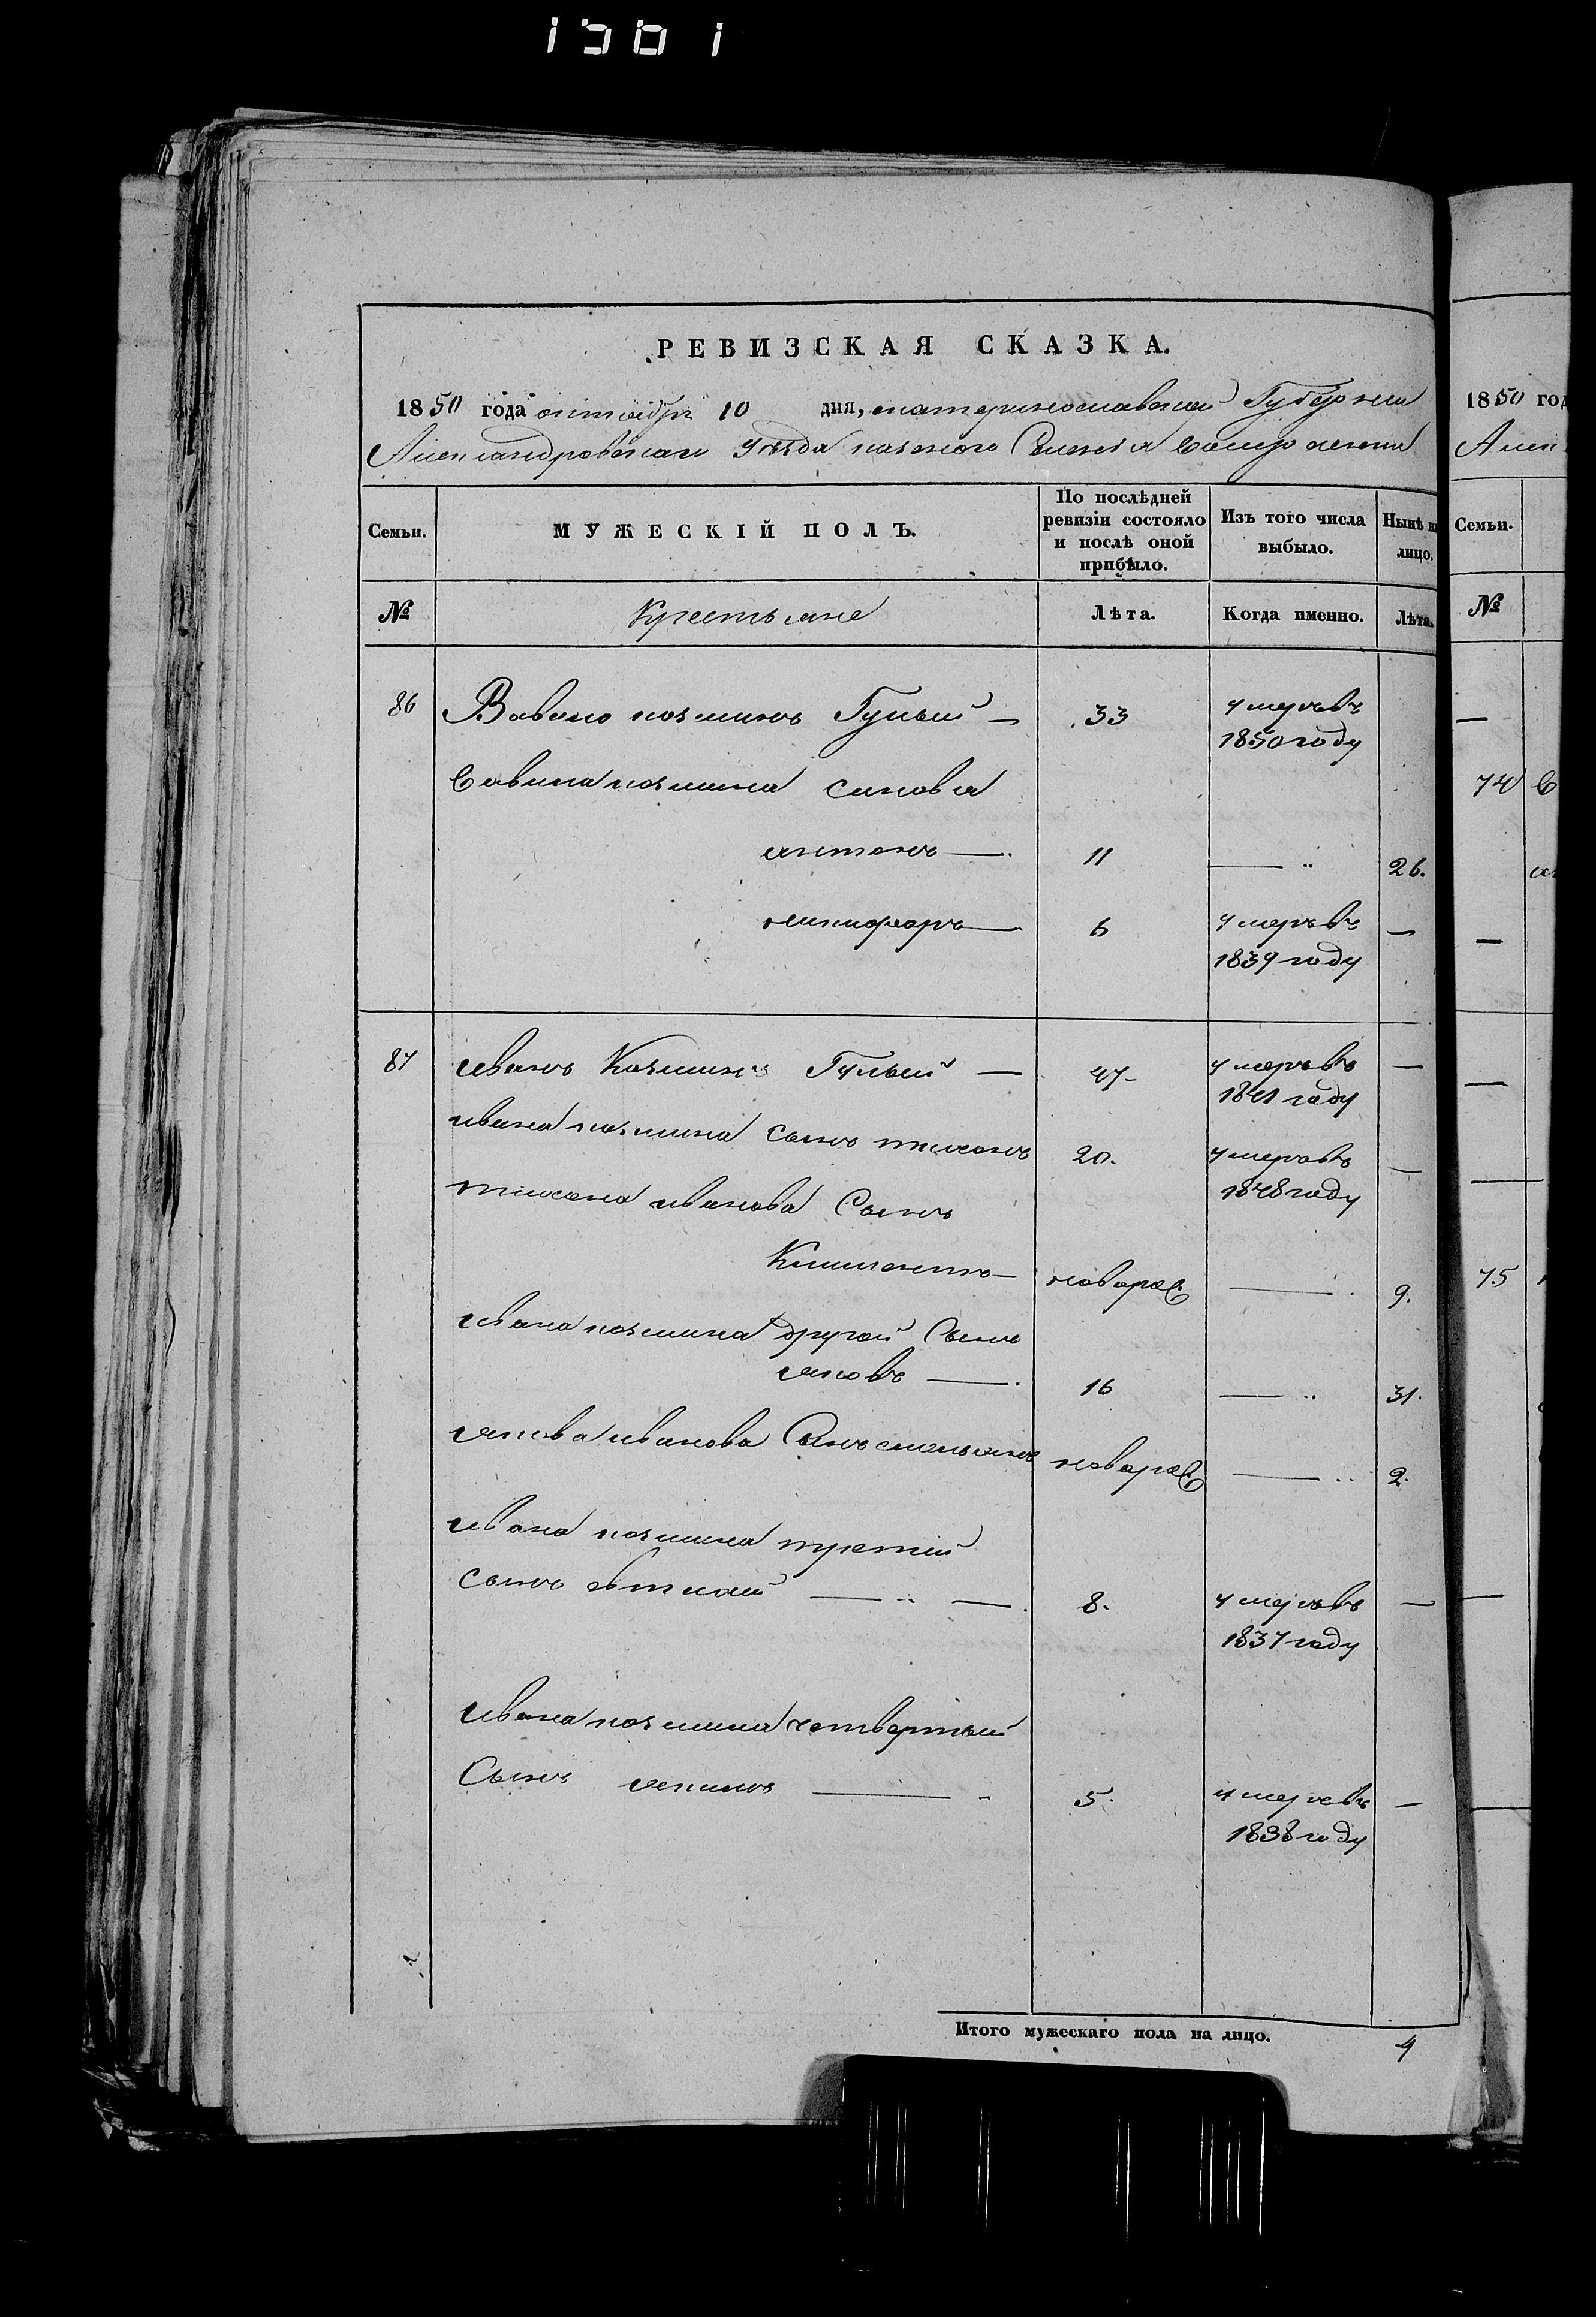 1501
РЕВИЗСКАЯ СКАЗКА.
1850 года октября 10 дня, екатеринославской Губернии
Александровскаго Уѣзда казеннаго Селенія
Семьи.
МУЖЕСКІЙ ПОЛЪ.
По послѣдней ревизіи состояло и послѣ оной прибыло.
Изъ того числа выбыло.
Нынѣ на лицо.
№
Крестьяне
Лѣта.
Когда именно.
Лѣта.
86
козминъ Гулый — 33 умеръ въ
1850 году
козмина синовья
антонъ — 11 — 26.
никифоръ — 6 умеръ въ —
1839 году
87
иванъ Козминъ Гулый — 47 — умеръ въ —
1841 году
ивана козмина сынъ тихонъ 20. умеръ въ —
1848 году
тихона иванова Сынъ
новорож — 9.
ивана козмина другой Сынъ
яковъ — 16 — 31.
якова иванова Сынъ емельянъ новорож — 2.
ивана козмина третій
сынъ — 8. умеръ въ —
1837 году
ивана козмина четвертый
Сынъ — 5. умеръ въ —
1838 году
Итого мужескаго пола на лицо. 4
1850 год
Семьи.
№
74
75